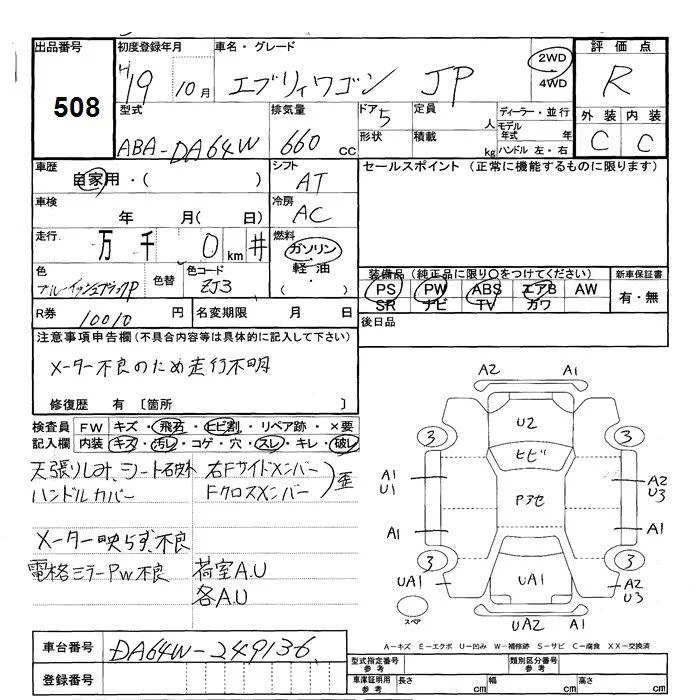 出品番号 初度登録年月 車名・グレード 評価点
508
H19 10月 エブリィワゴン JP 2WD 4WD R
型式 排気量 ドア 5 定員 人 ディーラー・並行 外装 内装
ABA-DA64W 660cc 形状 積載 kg モデル年式 年 ハンドル 左・右 C C
車歴 自家用・( ) シフト AT セールスポイント (正常に機能するものに限ります)
車検 年 月( 日) 冷房 AC
走行 万 千 0 km # 燃料 ガソリン 軽油 ( ・ )
色 ブルーイッシュブラックP 色替 色コード ZJ3
装備品 (純正品に限り〇をつけてください) 新車保証書
PS PW ABS エアB AW 有・無
SR ナビ TV カワ
R券 10010 円 名変期限 月 日 後日品
注意事項申告欄 (不具合内容等は具体的に記入して下さい)
メーター不良のため走行不明
修復歴 有 〔箇所 〕
検査員 FW キズ・飛石・ヒビ割・リペア跡・×要
記入欄 内装 キズ・汚レ・コゲ・穴・スレ・キレ・破レ
天張りしみ、シート破れ 右Fサイドメンバー
ハンドルカバー Fクロスメンバー )歪
メーター映らず、不良
電格ミラーPW不良 荷室A.U
各A.U
A2 A1
U2
3 ヒビ 3
A1 U1 Pアセ A2 U3
A1 A1
3 3
UA1 UA1 A2 U3
スペア UA2 A1
A-キズ E-エクボ U-凹み W-補修跡 S-サビ C-腐食 XX-交換済
車台番号 DA64W-249136
登録番号
型式指定番号 参考 類別区分番号 参考
車庫証明用 参考 長さ cm 幅 cm 高さ cm